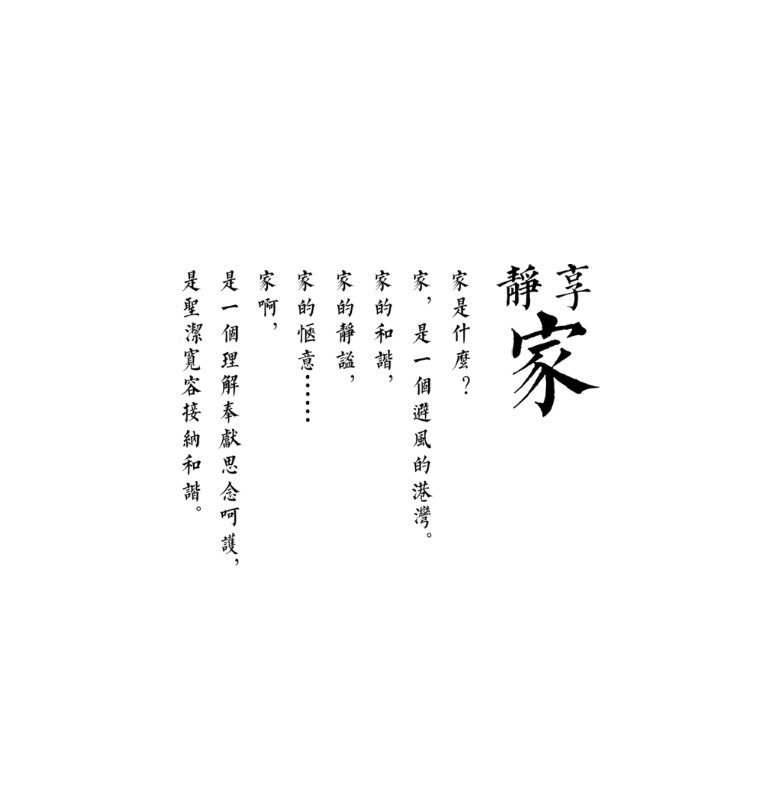 享靜
家
家是什麼？
家，是一個避風的港灣。
家的和諧，
家的靜謐，
家的愜意……
家啊，
是一個理解奉獻思念呵護，
是聖潔寬容接納和諧。